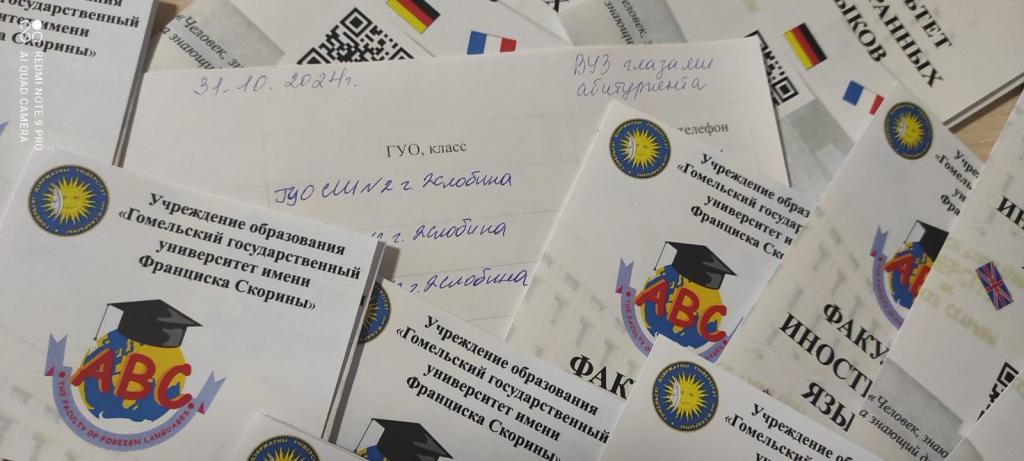 REDMI NOTE 9 PRO
AI QUAD CAMERA
государственный
имени
Скорины»
«Человек,
знающий
ЫКОВ
31.10.2024г.
ВУЗ глазами
абитуриента
телефон
ГУО, класс
ГУО СШ №2 г. Жлобина
г. Жлобина
г. Жлобина
Учреждение образования
«Гомельский государственный
университет имени
Франциска Скорины»
ABC
THE FACULTY OF FOREIGN LANGUAGES
Учреждение образования
«Гомельский государственный
университет имени
Франциска Скорины»
Учреждение
«Гомельский
университет
Франциска
ABC
ФАК
Учреждение
«Гомельский
ФАКУ
ИНОСТ
ЯЗЫ
«Человек, знаю
а знающий д